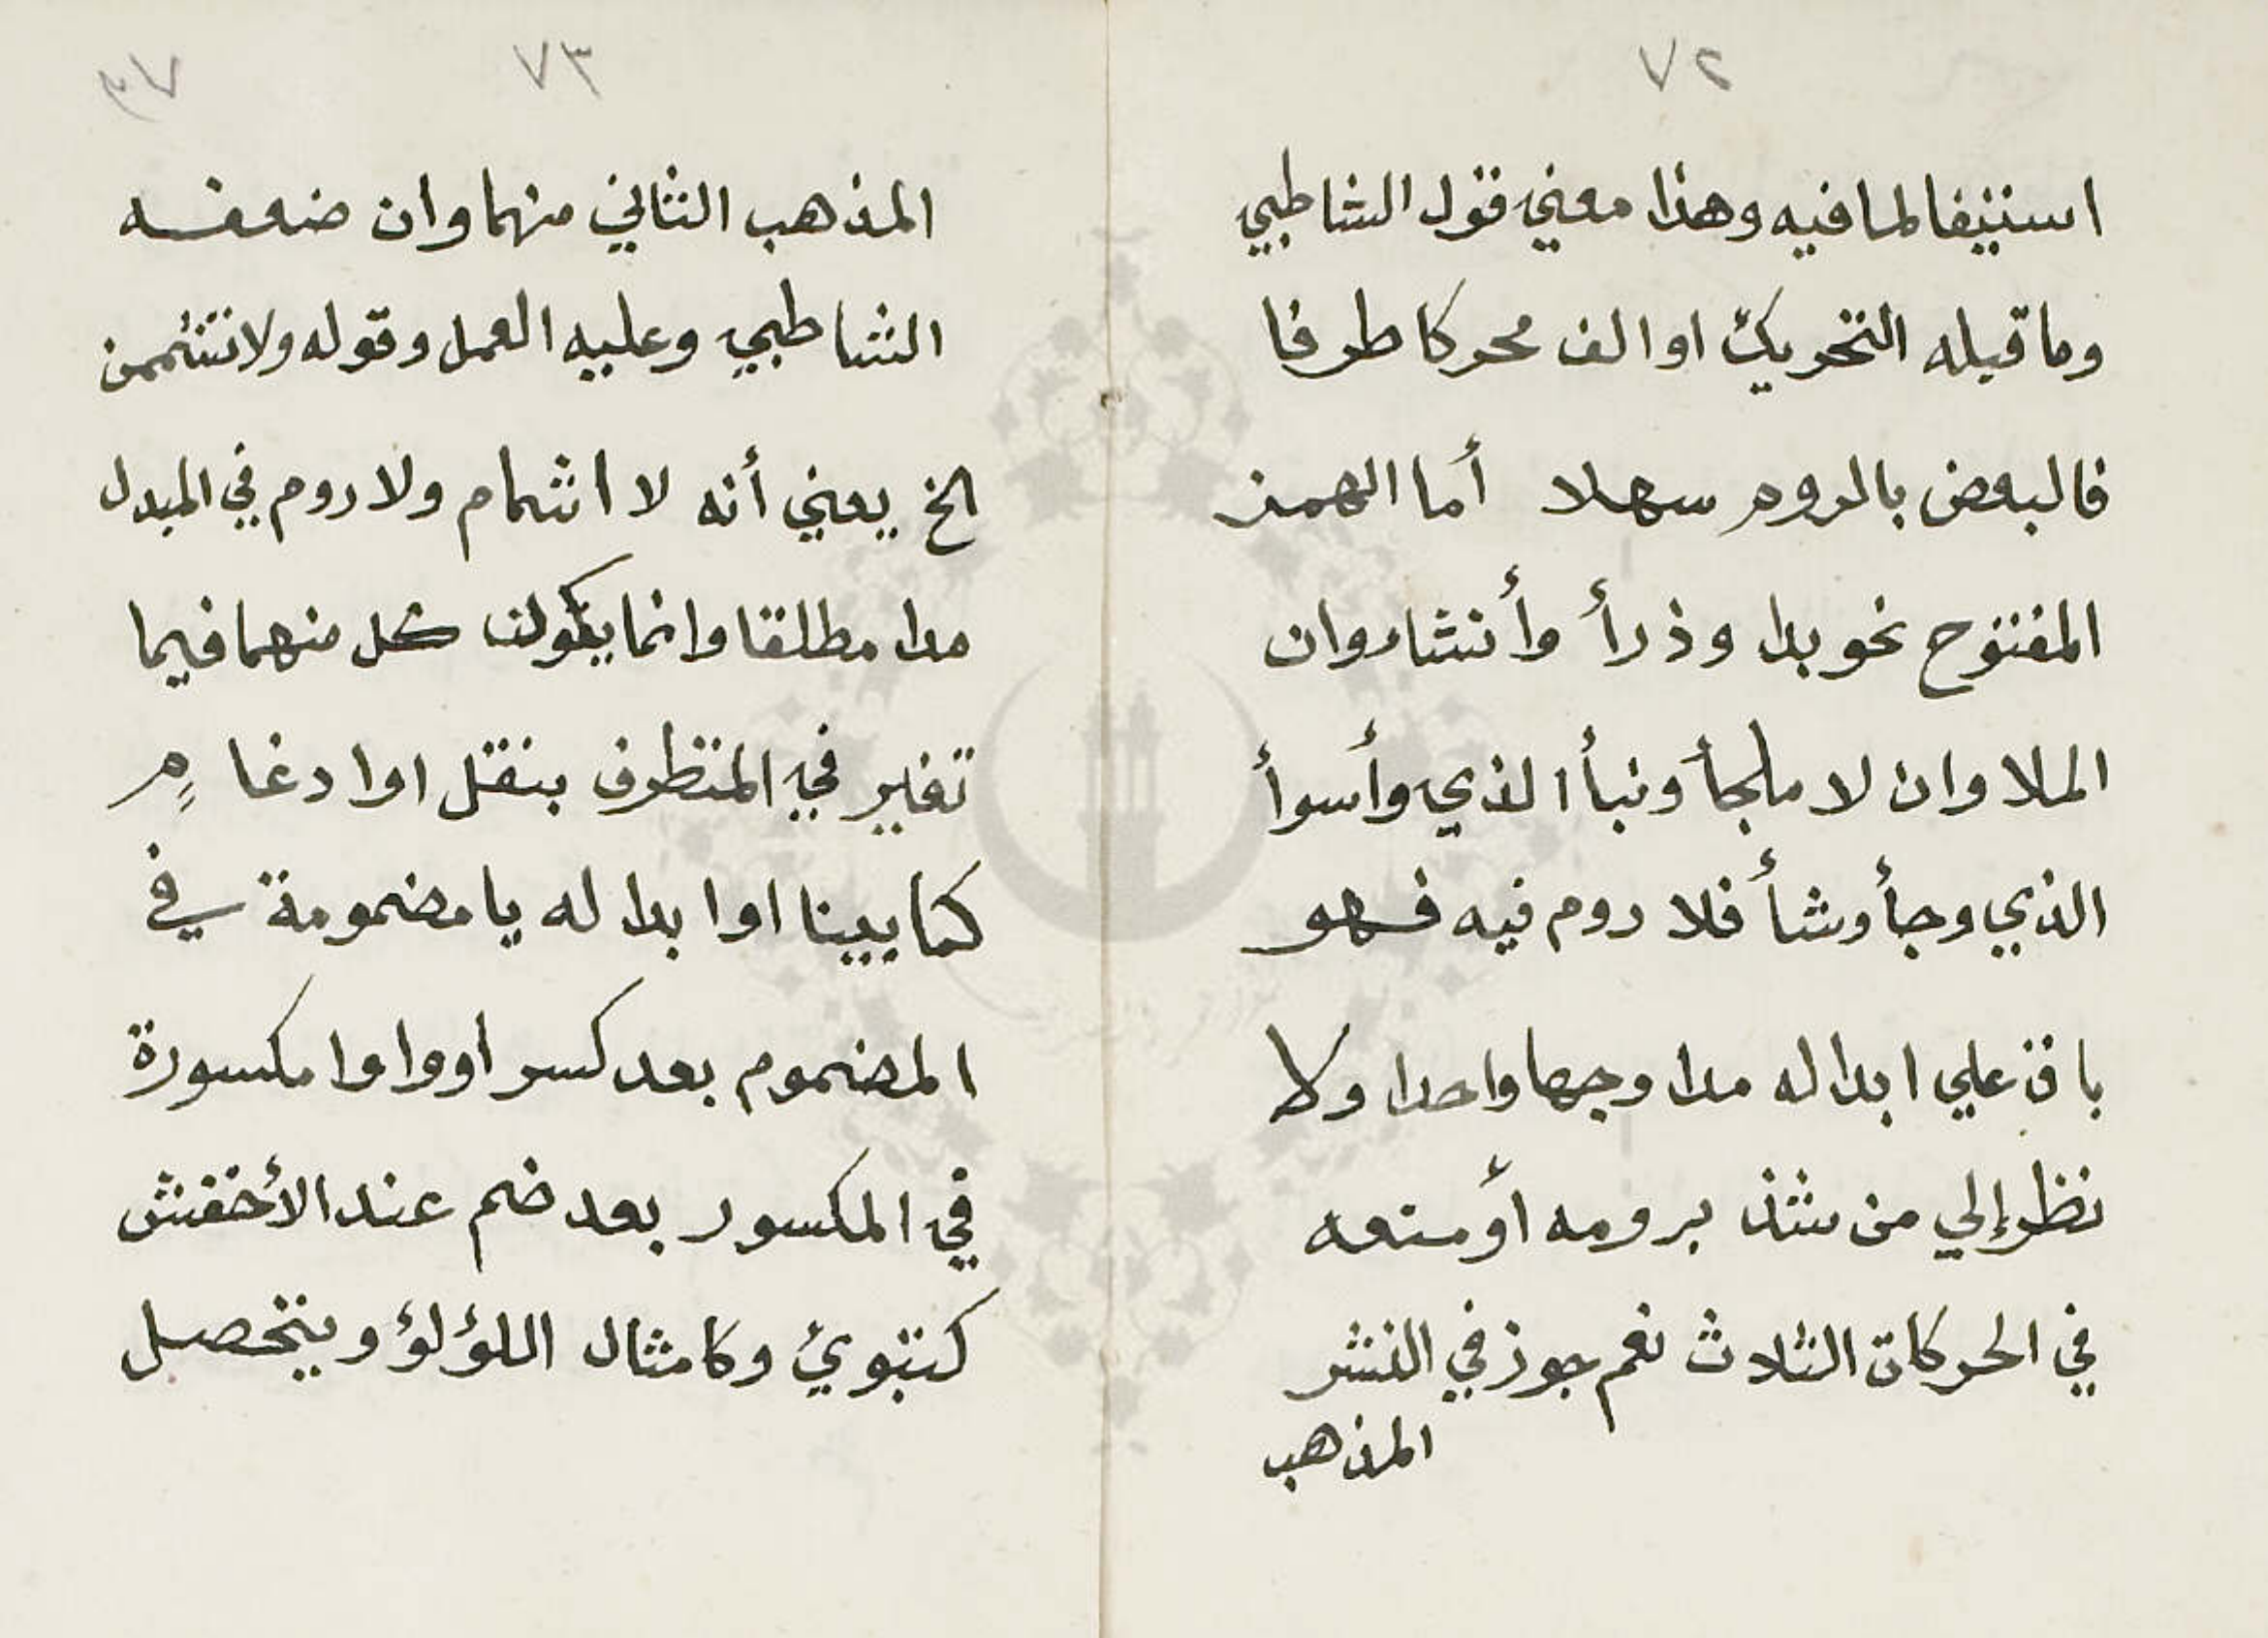 ٧٢
استيفا لما فيه وهذا معني قول الشاطبي
وما قبله التحريك او الف محركا طرفا
فالبعض بالروم سهلا أما الهمز
المفتوح نحو بدا وذرأ وأنشأ وان
الملا وان لا ملجأ ونبأ الذي وأسوأ
الذي وجأ وشأ فلا روم فيه فهو
باق علي ابداله مدا وجها واحدا ولا
نظر إلي من شذ برومه أو منعه
في الحركات الثلاث نعم جوز في النشر
المذهب
٧٣
٣٧
المذهب الثاني منهما وان ضعفه
الشاطبي وعليه العمل وقوله ولا تشممن
الخ يعني أنه لا اشمام ولا روم في المبدل
مدا مطلقا وانما يكون كل منهما فيما
تغير في المتطرف بنقل او ادغام
كما بينا او ابداله يا مضمومة في
المضموم بعد كسر او واوا مكسورة
في المكسور بعد ضم عند الأخفش
كتبوئ وكامثال اللؤلؤ ويتحصل